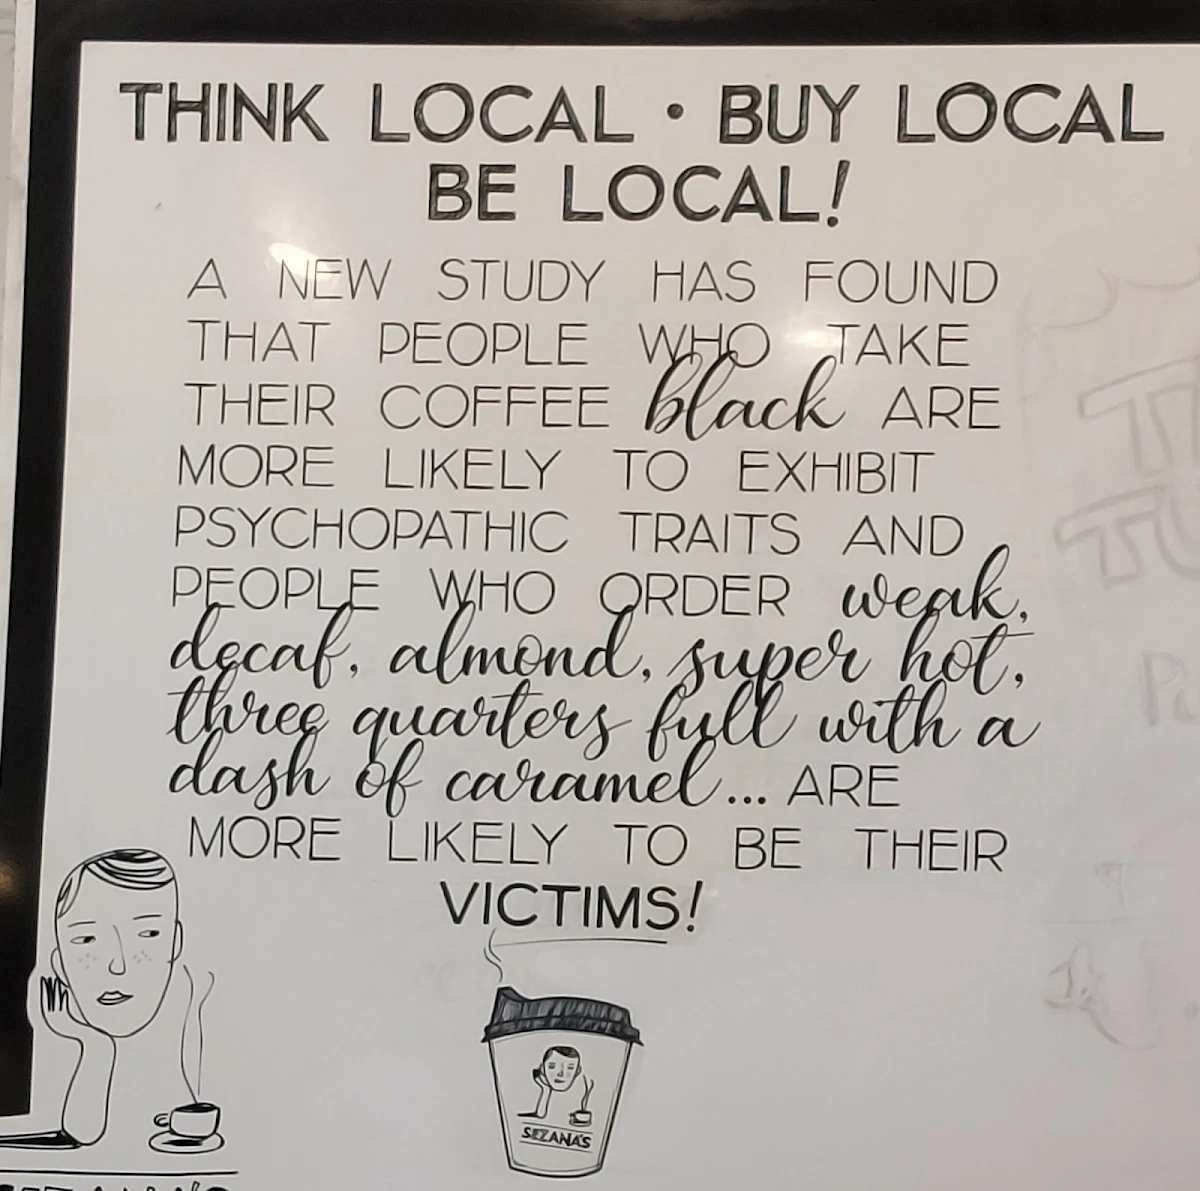 THINK LOCAL • BUY LOCAL
BE LOCAL!
A NEW STUDY HAS FOUND
THAT PEOPLE WHO TAKE
THEIR COFFEE black ARE
MORE LIKELY TO EXHIBIT
PSYCHOPATHIC TRAITS AND
PEOPLE WHO ORDER weak,
decaf, almond, super hot,
three quarters full with a
dash of caramel... ARE
MORE LIKELY TO BE THEIR
VICTIMS!
SEZANA'S